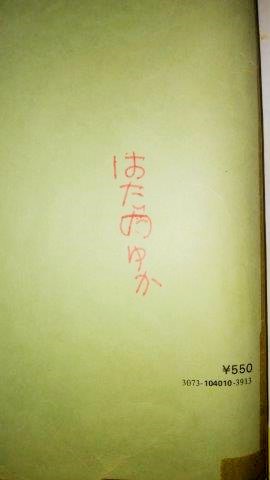 はたのゆか
¥550
3073-104010-3913